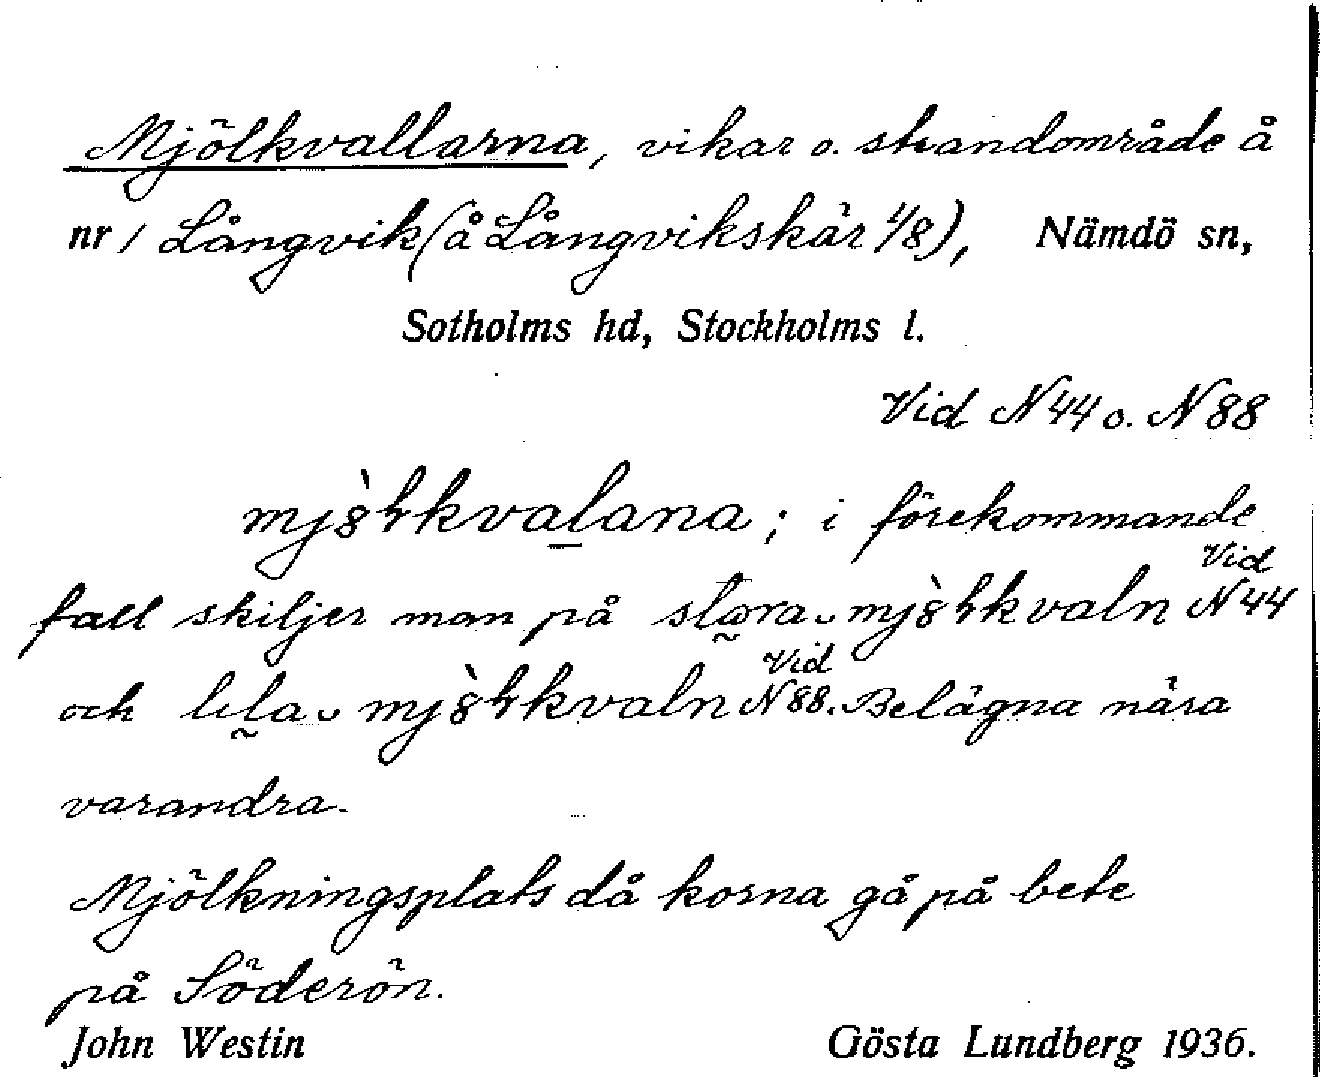 Mjölkvallarna, vikar o. strandområde å
nr 1 Långvik (å Långvikskär 1/8), Nämdö sn,
Sotholms hd, Stockholms l.
Vid N44 o. N88
i förekommande
Vid
fall skiljer man på N44
Vid
och N88. Belägna nära
varandra.
Mjölkningsplats då korna gå på bete
på Söderön.
John Westin Gösta Lundberg 1936.